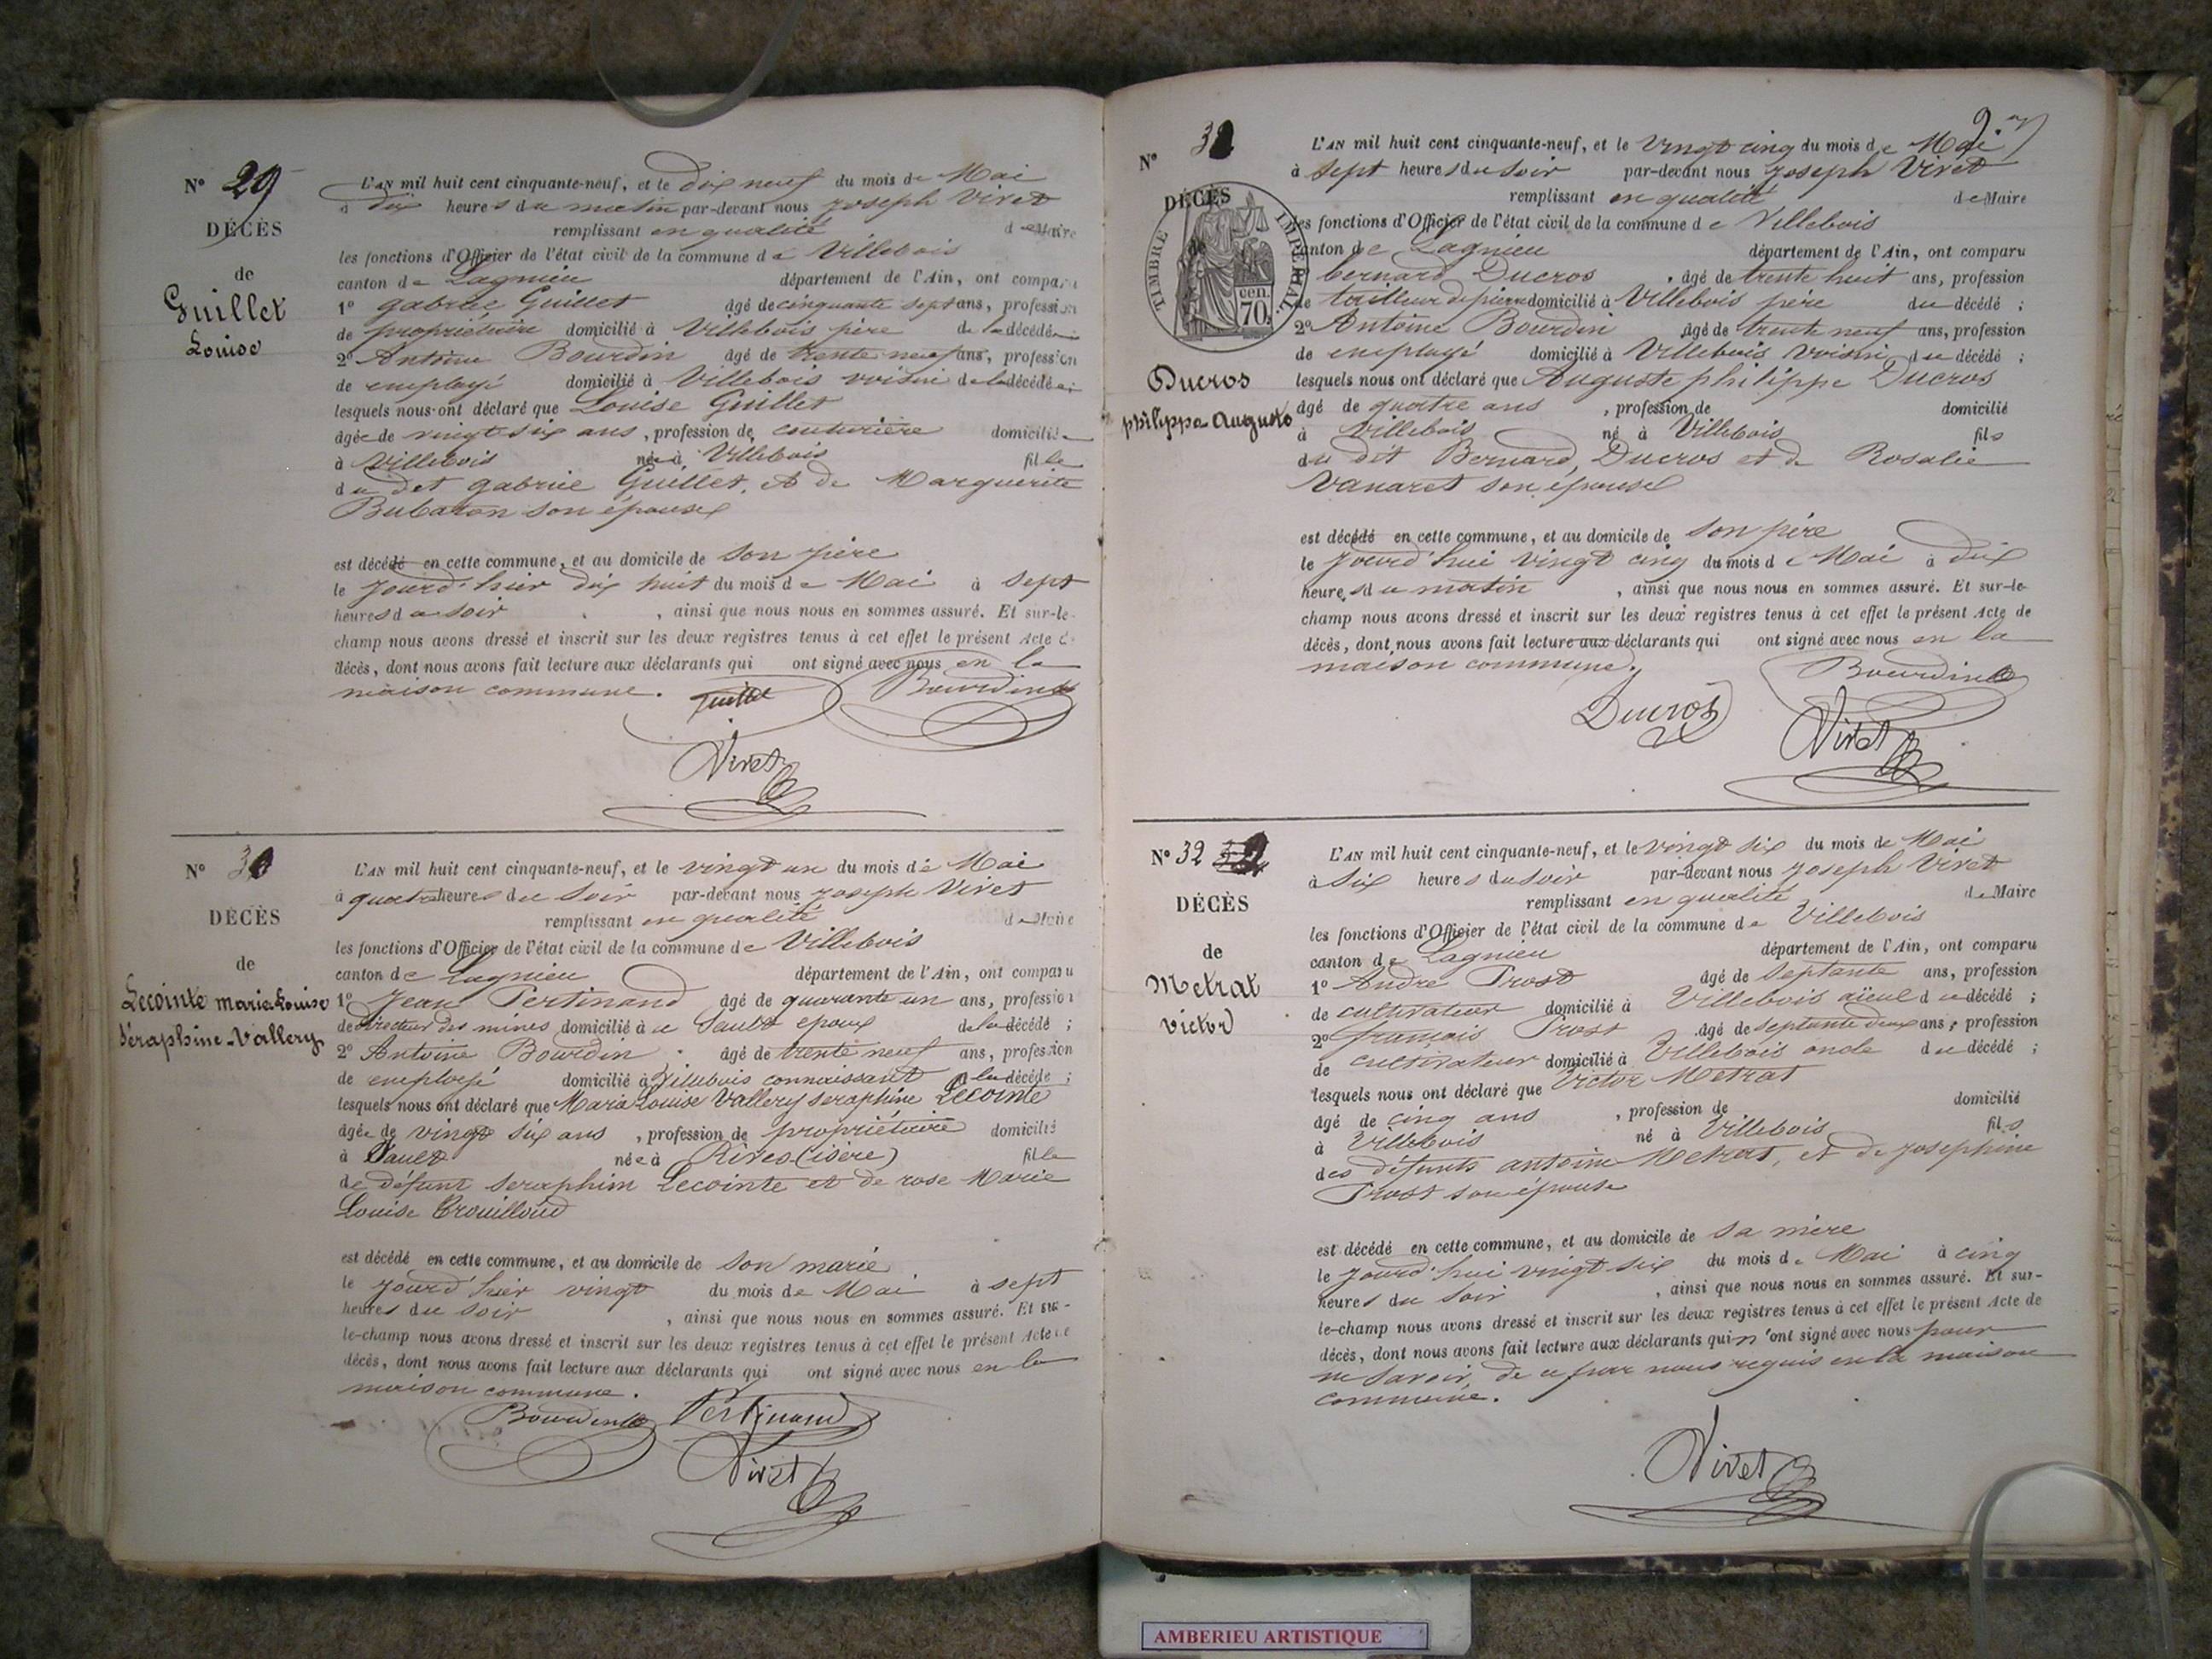 N° 29
DÉCÈS
de
Guillet
Louise
L'AN mil huit cent cinquante-neuf, et le dix neuf du mois de Mai
à dix heures du matin par-devant nous joseph Viret
remplissant en qualité de Maire
les fonctions d'Officier de l'état civil de la commune de Villebois
canton de Lagnieu département de l'Ain, ont comparu
1° gabriel Guillet âgé de cinquante sept ans, profession
de propriétaire domicilié à Villebois père de la décédée
2° Antoine Bourdin âgé de trente neuf ans, profession
de employé domicilié à Villebois voisin de la décédée;
lesquels nous ont déclaré que Louise Guillet
âgée de vingt six ans, profession de couturière domiciliée
à Villebois née à Villebois fille
du dit gabriel Guillet, et de Marguerite
Bubaton son épouse
est décédé en cette commune, et au domicile de son père
le jourd'hier dix huit du mois de Mai à sept
heures du soir, ainsi que nous nous en sommes assuré. Et sur-le-
champ nous avons dressé et inscrit sur les deux registres tenus à cet effet le présent Acte de
décès, dont nous avons fait lecture aux déclarants qui ont signé avec nous en la
maison commune. Guillet Bourdin
Viret
N° 30
DÉCÈS
de
Lecointe marie Louise
Séraphine-Vallery
L'AN mil huit cent cinquante-neuf, et le vingt un du mois de Mai
à quatre heures du soir par-devant nous joseph Viret
remplissant en qualité de Maire
les fonctions d'Officier de l'état civil de la commune de Villebois
canton de Lagnieu département de l'Ain, ont comparu
1° Jean Pertinand âgé de quarante un ans, profession
de directeur des mines domicilié à Sault epoux de la décédé;
2° Antoine Bourdin âgé de trente neuf ans, profession
de employé domicilié à Villebois connaissant la décédé;
lesquels nous ont déclaré que Marie Louise Vallery seraphine Lecointe
âgée de vingt six ans, profession de propriétaire domicilié
à Sault née à Rives (isère) fille
de défunt Seraphim Lecointe et de rose Marie
Louise Crouilloud
est décédé en cette commune, et au domicile de son marie
le jourd'hier vingt du mois de Mai à sept
heures du soir, ainsi que nous nous en sommes assuré. Et sur-
le-champ nous avons dressé et inscrit sur les deux registres tenus à cet effet le présent Acte de
décès, dont nous avons fait lecture aux déclarants qui ont signé avec nous en la
maison commune.
Bourdin Pertinand
Viret
N° 31
DÉCÈS
de
TIMBRE IMPÉRIAL.
cen.
70.
Ducros
philippe Auguste
L'AN mil huit cent cinquante-neuf, et le Vingt cinq du mois de Mai
à sept heures du soir par-devant nous Joseph Viret
remplissant en qualité de Maire
les fonctions d'Officier de l'état civil de la commune de Villebois
canton de Lagnieu département de l'Ain, ont comparu
bernard Ducros, âgé de trente huit ans, profession
de tailleur de pierre domicilié à Villebois père du décédé;
2° Antoine Bourdin âgé de trente neuf ans, profession
de employé domicilié à Villebois voisin du décédé;
lesquels nous ont déclaré que Auguste philippe Ducros
âgé de quatre ans, profession de domicilié
à Villebois né à Villebois fils
du dit Bernard, Ducros et de Rosalie
Vanaret son épouse
est décédé en cette commune, et au domicile de son père
le jourd'hui vingt cinq du mois de Mai à dix
heures du matin, ainsi que nous nous en sommes assuré. Et sur-le-
champ nous avons dressé et inscrit sur les deux registres tenus à cet effet le présent Acte de
décès, dont nous avons fait lecture aux déclarants qui ont signé avec nous en la
maison commune.
Bourdin
Ducros
Viret
N° 32
DÉCÈS
de
Metrat
victor
L'AN mil huit cent cinquante-neuf, et le vingt six du mois de Mai
à six heures du soir par-devant nous joseph Viret
remplissant en qualité de Maire
les fonctions d'Officier de l'état civil de la commune de Villebois
canton de Lagnieu département de l'Ain, ont comparu
1° André Trost âgé de septante ans, profession
de cultivateur domicilié à Villebois aïeul du décédé;
2° françois Trost âgé de septante deux ans, profession
de cultivateur domicilié à Villebois oncle du décédé;
lesquels nous ont déclaré que Victor Metrat
âgé de cinq ans, profession de domicilié
à Villebois né à Villebois fils
des défunts antoine Metrat, et de josephine
Trost son épouse
est décédé en cette commune, et au domicile de sa mère
le jourd'hui vingt six du mois de Mai à cinq
heures du soir, ainsi que nous nous en sommes assuré. Et sur-
le-champ nous avons dressé et inscrit sur les deux registres tenus à cet effet le présent Acte de
décès, dont nous avons fait lecture aux déclarants qui n'ont signé avec nous pour
ne savoir, de ce par nous requis en la maison
commune.
Viret
AMBERIEU ARTISTIQUE